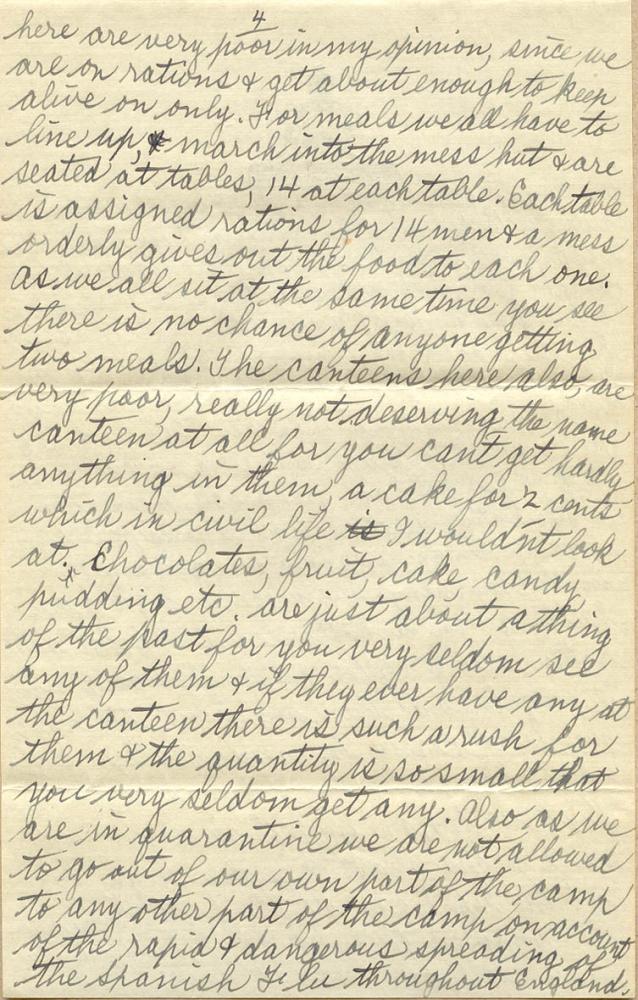 4
here are very poor in my opinion, since we
are on rations & get about enough to keep
alive on only. For meals we all have to
line up, & march into the mess hut & are
seated at tables, 14 at each table. Each table
is assigned rations for 14 men & a mess
orderly gives out the food to each one.
As we all sit at the same time you see
there is no chance of anyone getting
two meals. The canteens here also, are
very poor, really not deserving the name
canteen at all for you cant get hardly
anything in them, a cake for 2 cents
which in civil life is I wouldn't look
at. Chocolates, fruit, cake, candy,
pudding etc. are just about a thing
of the past for you very seldom see
any of them & if they ever have any at
the canteen there is such a rush for
them & the quantity is so small that
you very seldom get any. Also as we
are in quarantine we are not allowed
to go out of our own part of the camp
to any other part of the camp on account
of the rapid & dangerous spreading of
the Spanish Flu throughout England.